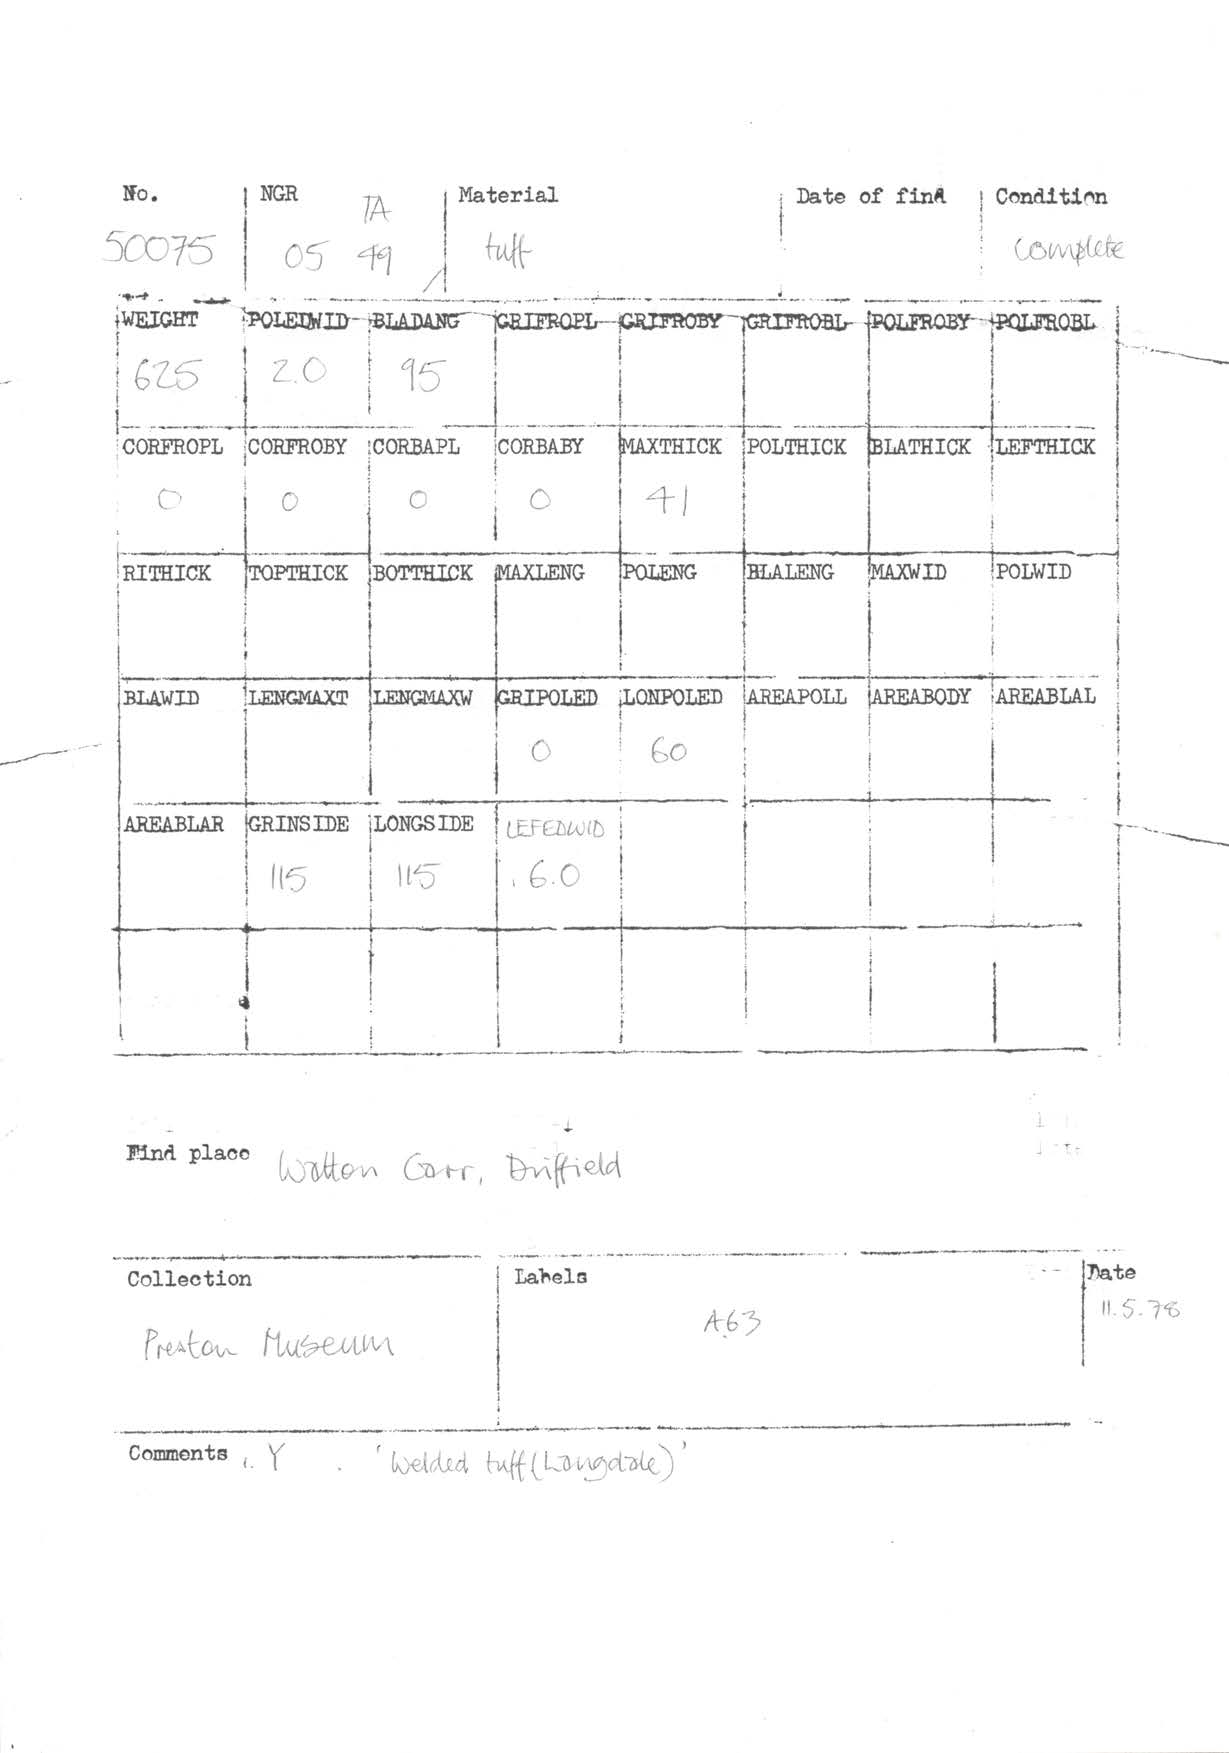 No. NGR TA Material Date of find Condition
50075 05 49 tuff complete
WEIGHT POLEDWID BLADANG GRIFROPL GRIFROBY GRIFROBL POLFROBY POLFROBL
625 2.0 95
CORFROPL CORFROBY CORBAPL CORBABY MAXTHICK POLTHICK BLATHICK LEFTHICK
0 0 0 0 41
RITHICK TOPTHICK BOTTHICK MAXLENG POLENG BLALENG MAXWID POLWID
BLAWID LENGMAXT LENGMAXW GRIPOLED LONPOLED AREAPOLL AREABODY AREABLAL
0 60
AREABLAR GRINSIDE LONGSIDE LEFEDWID
115 115 6.0
Find place Watton Carr, Driffield
Collection Labels Date
Preston Museum A63 11.5.78
Comments Y 'Welded tuff (Langdale)'